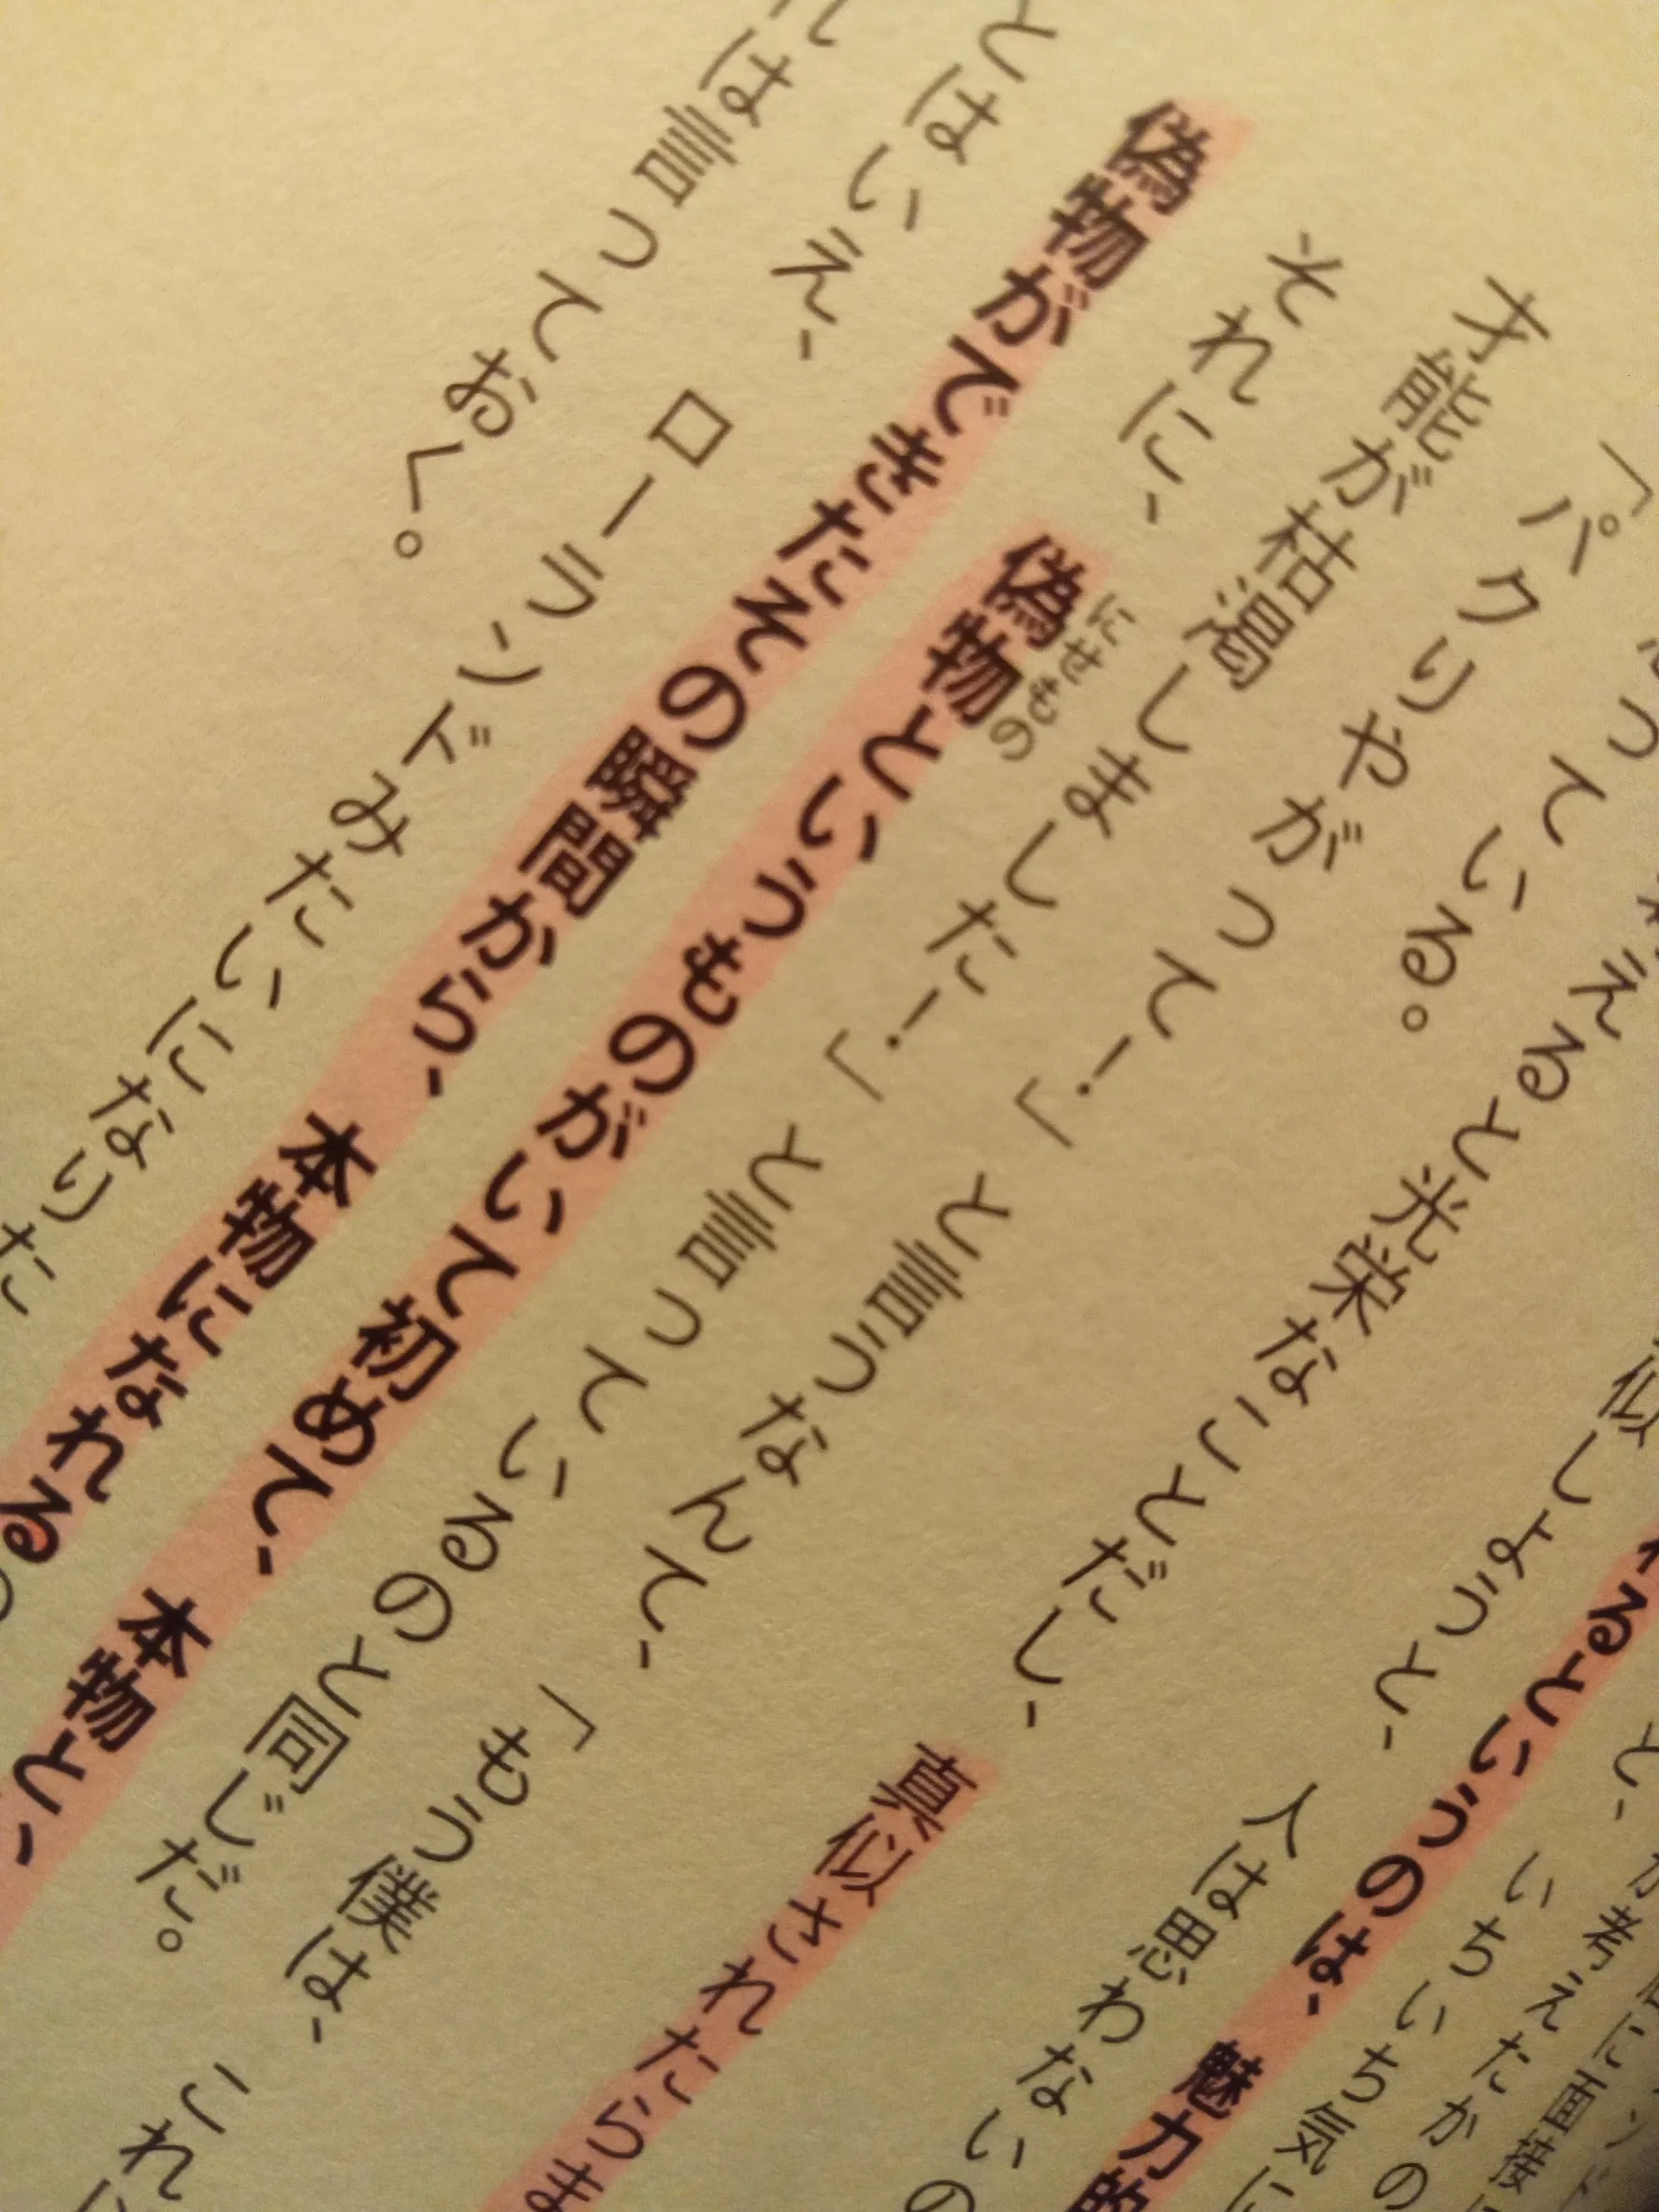 に面接
考えたかの
いちいち気に
るというのは、魅力的
似しようと、人は思わないの
えると光栄なことだし、真似されたらま
っている。
「パクりやがって！」と言うなんて、「もう僕は、これ
才能が枯渇しました！」と言っているのと同じだ。
それに、偽物というものがいて初めて、本物と、
にせもの
偽物ができたその瞬間から、本物になれる
とはいえ、ローランドみたいになりた
れは言っておく。